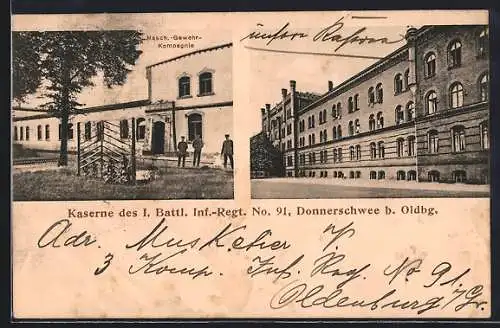 Masch.-Gewehr-
Kompagnie
unsere Kaserne
Kaserne des I. Battl. Inf.-Regt. No. 91, Donnerschwee b. Oldbg.
Adr. Musketier
3 Komp. Inf. Reg. No 91.
Oldenburg i/Gr.